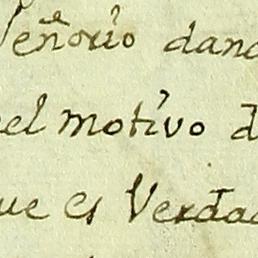 Señorio dand
el motivo d
ue es Verdad